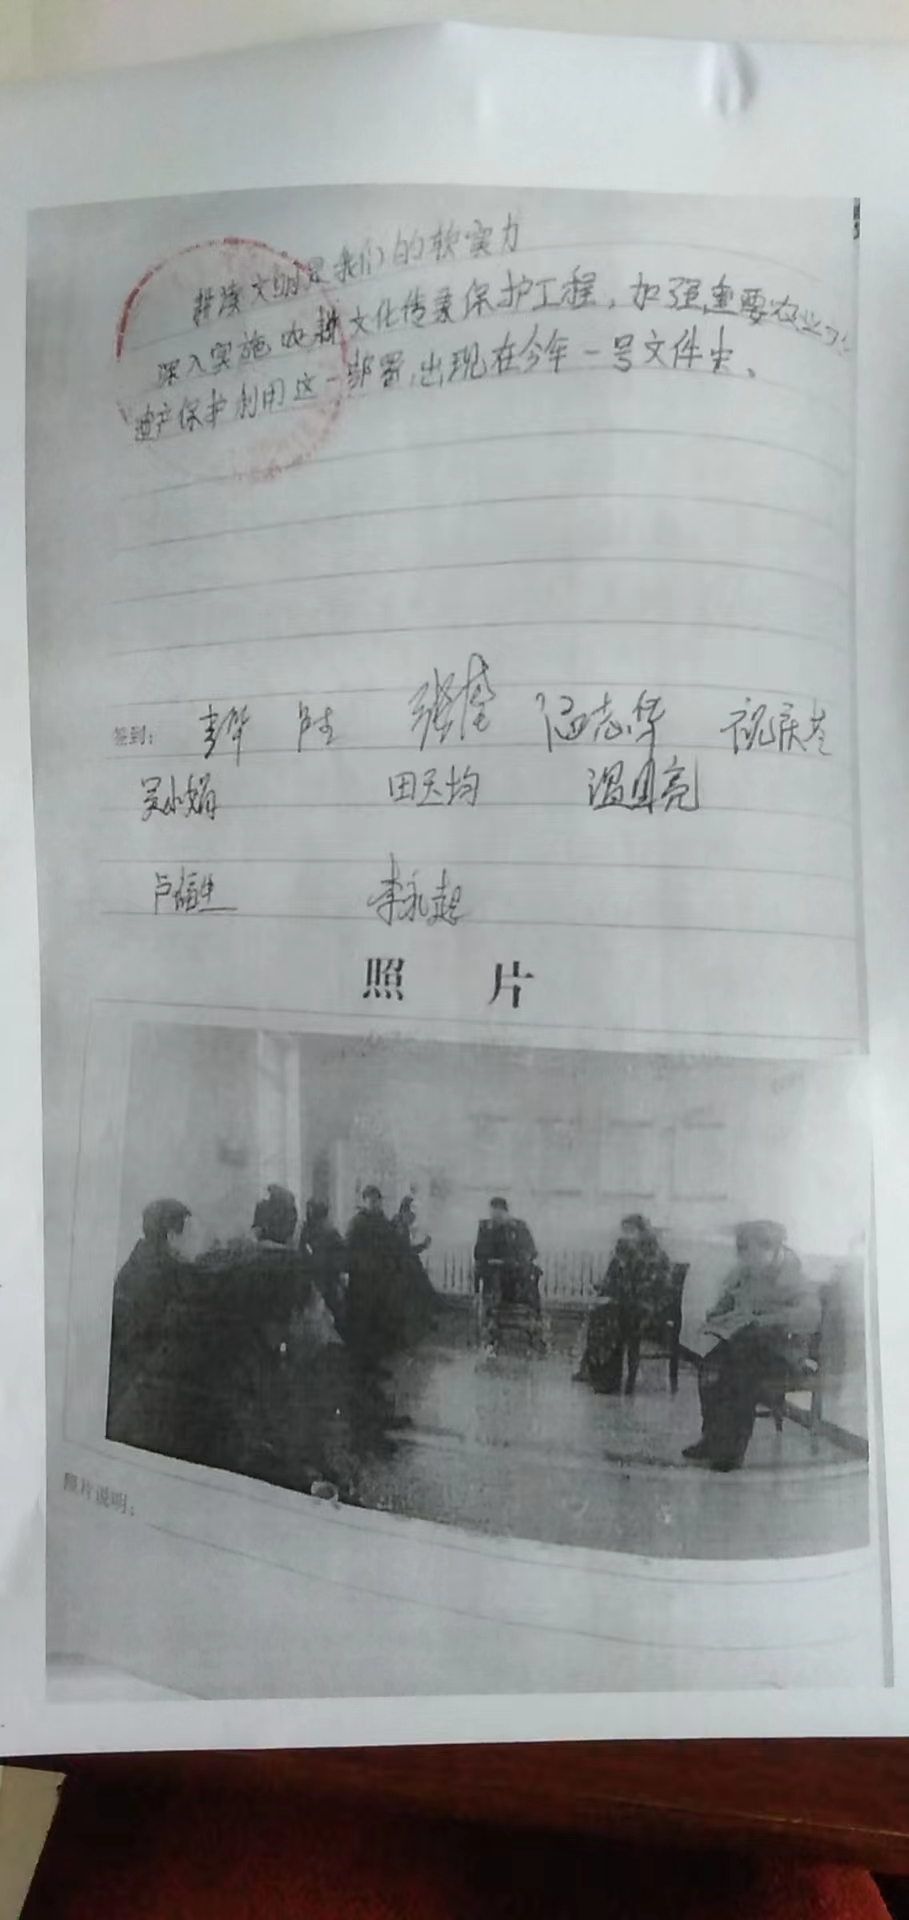 耕读文明是我们的软实力
深入实施农耕文化传承保护工程，加强重要农业文化
遗产保护利用这一部署，出现在今年一号文件中。
签到：
祝庆
吴小娟 田天均 温国亮
卢福生 李永起
照 片
照片说明：